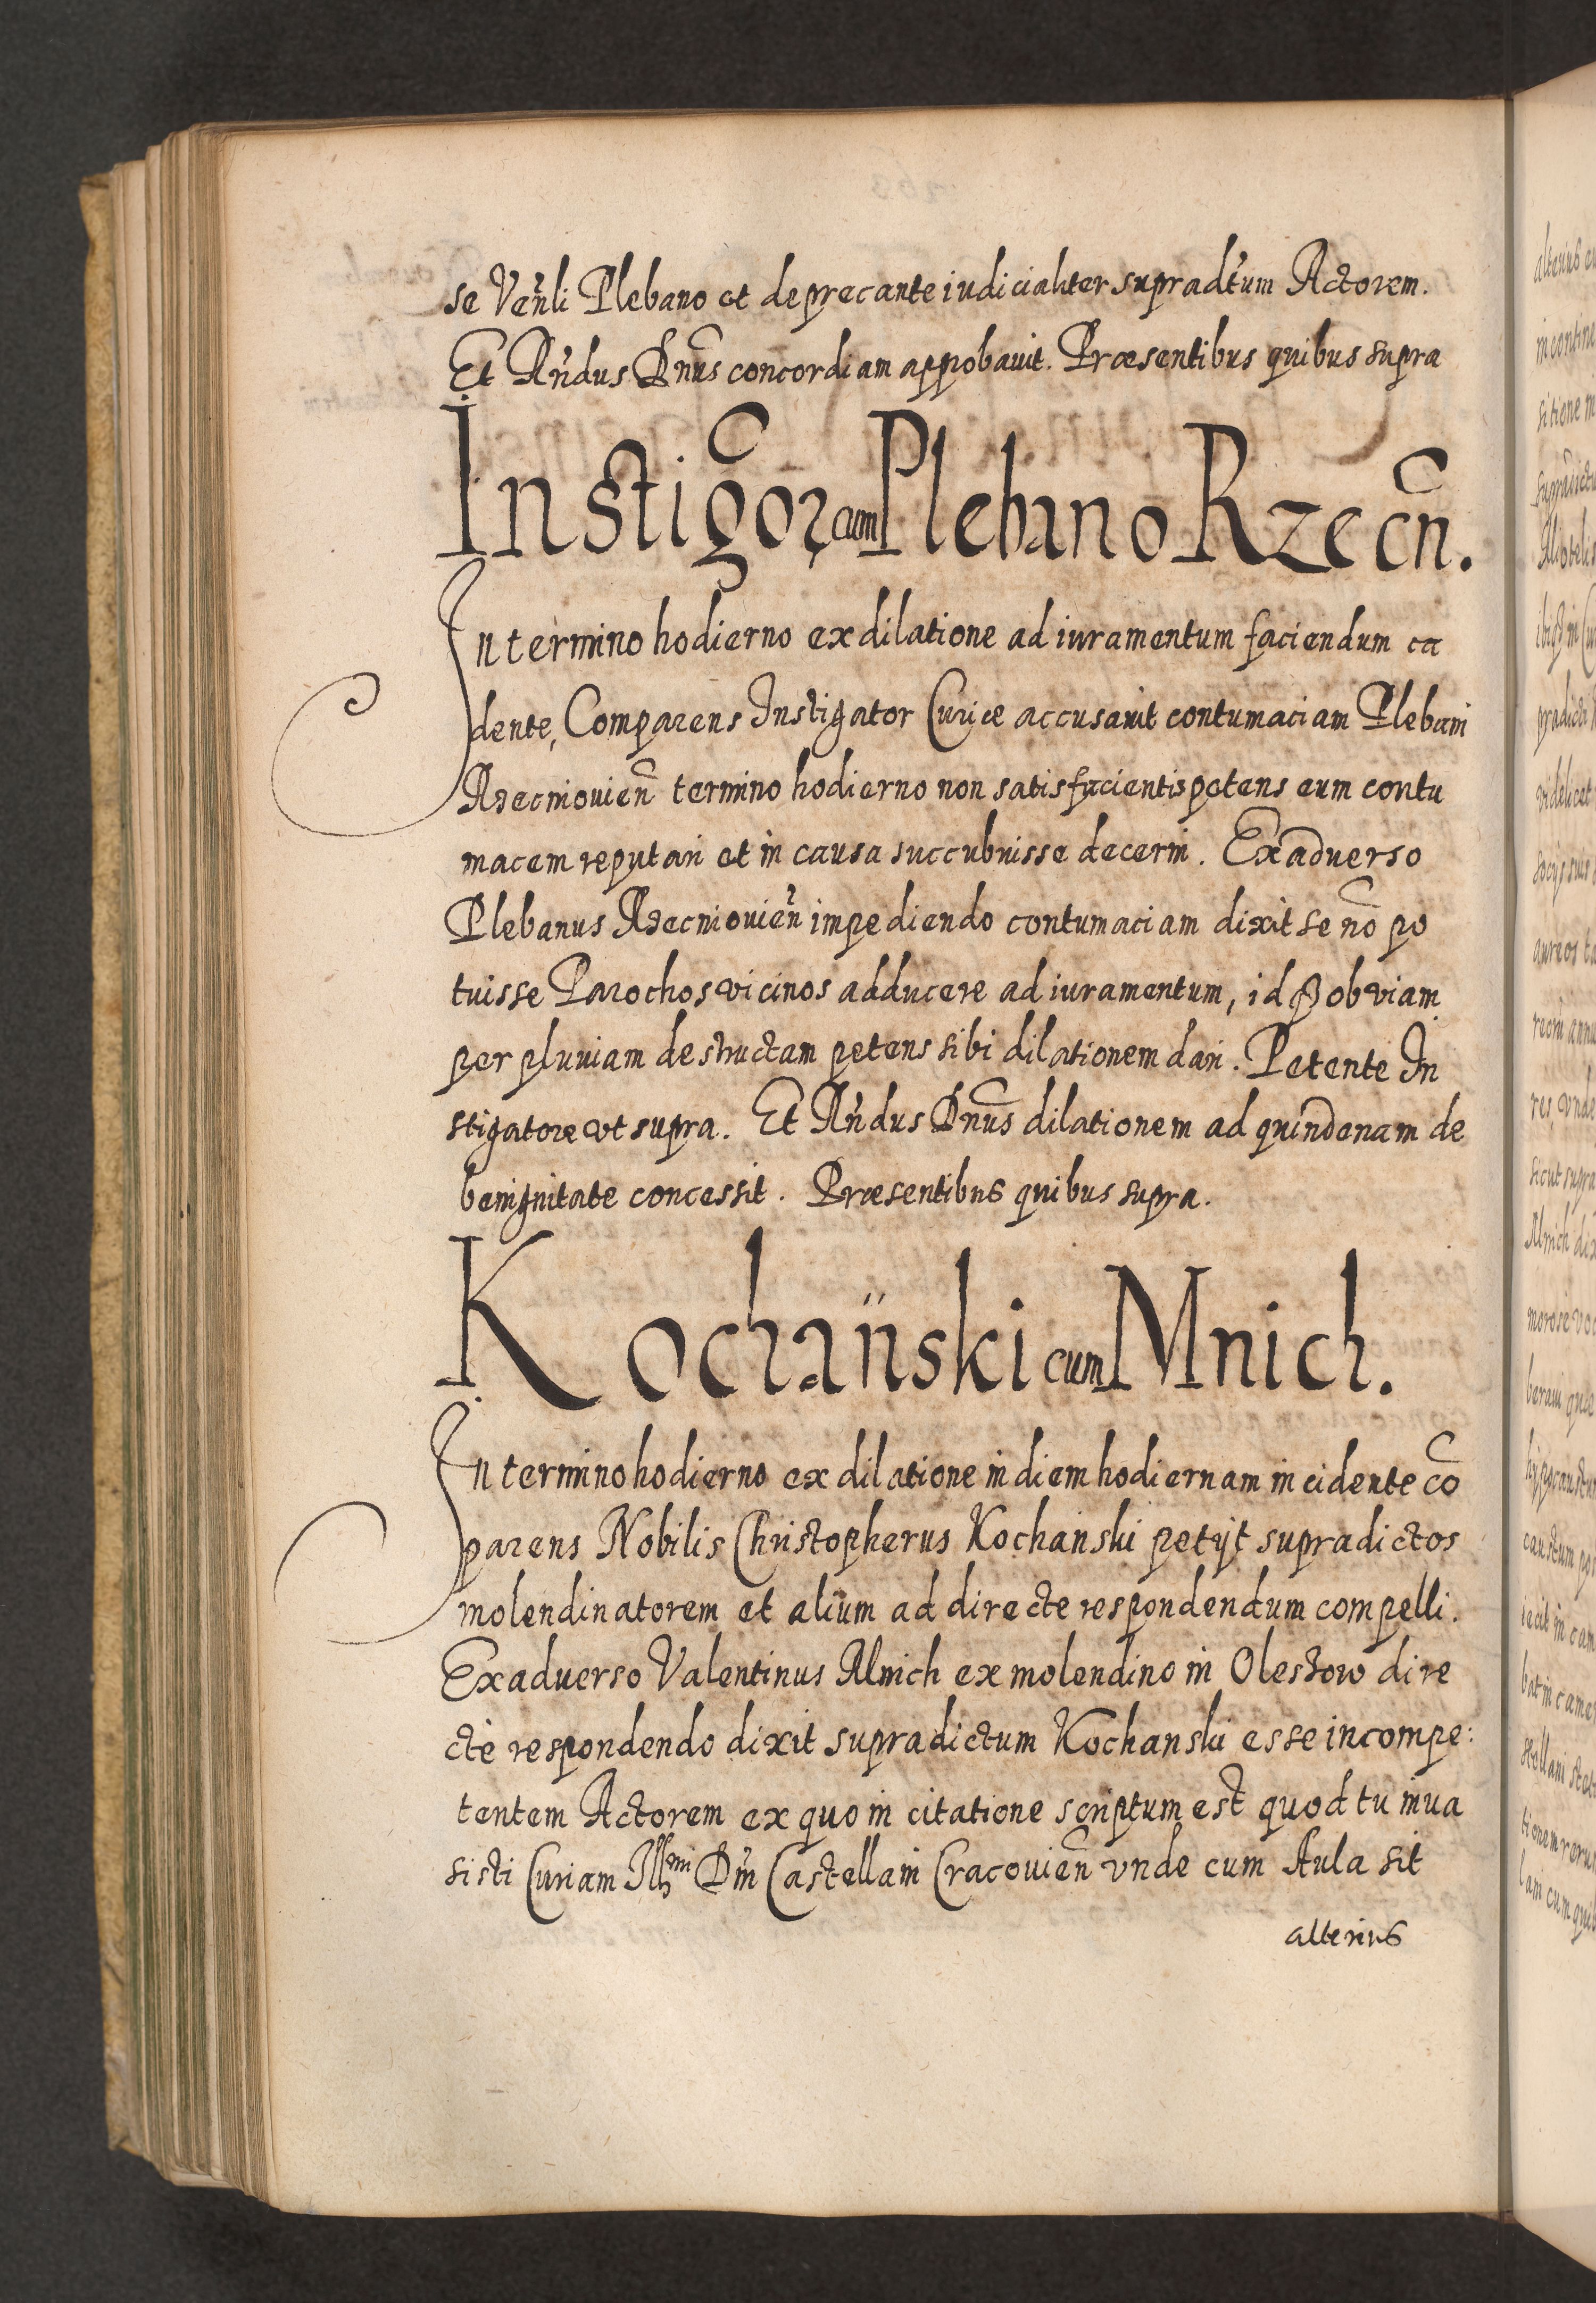 se Ven̄li Plebano et deprecante iudicialiter supradt̄um Actorem.
Et Rn̄dus Dn̄us concordiam approbauit. Præsentibus quibus supra
Instigōr cum Plebano Rzecn̄.
In termino hodierno ex dilatione ad iuramentum faciendum ca
dente, Comparens Instigator Curiæ accusauit contumaciam Plebani
Rzecniouien̄ termino hodierno non satisfacientis petens eum contu
macem reputari et in causa succubuisse decerni. Exaduerso
Plebanus Rzecniouien̄ impediendo contumaciam dixit se nō po
tuisse Parochos vicinos adducere ad iuramentum, idq3 ob viam
per pluuiam destructam petens sibi dilationem dari. Petente In
stigatore vt supra. Et Rn̄dus Dn̄us dilationem ad quindenam de
benignitate concessit. Præsentibus quibus supra.
Kochański cum Mnich.
In termino hodierno ex dilatione in diem hodiernam incidente cō
parens Nobilis Christopherus Kochanski petijt supradictos
molendinatorem et alium ad directe respondendum compelli.
Exaduerso Valentinus Mnich ex molendino in Oleszow dire
ctè respondendo dixit supradictum Kochanski esse incompe:
tentem Actorem ex quo in citatione scriptum est quod tu inua
sisti Curiam Illmi Dn̄i Castellani Cracouien̄ vnde cum Aula sit
alterius